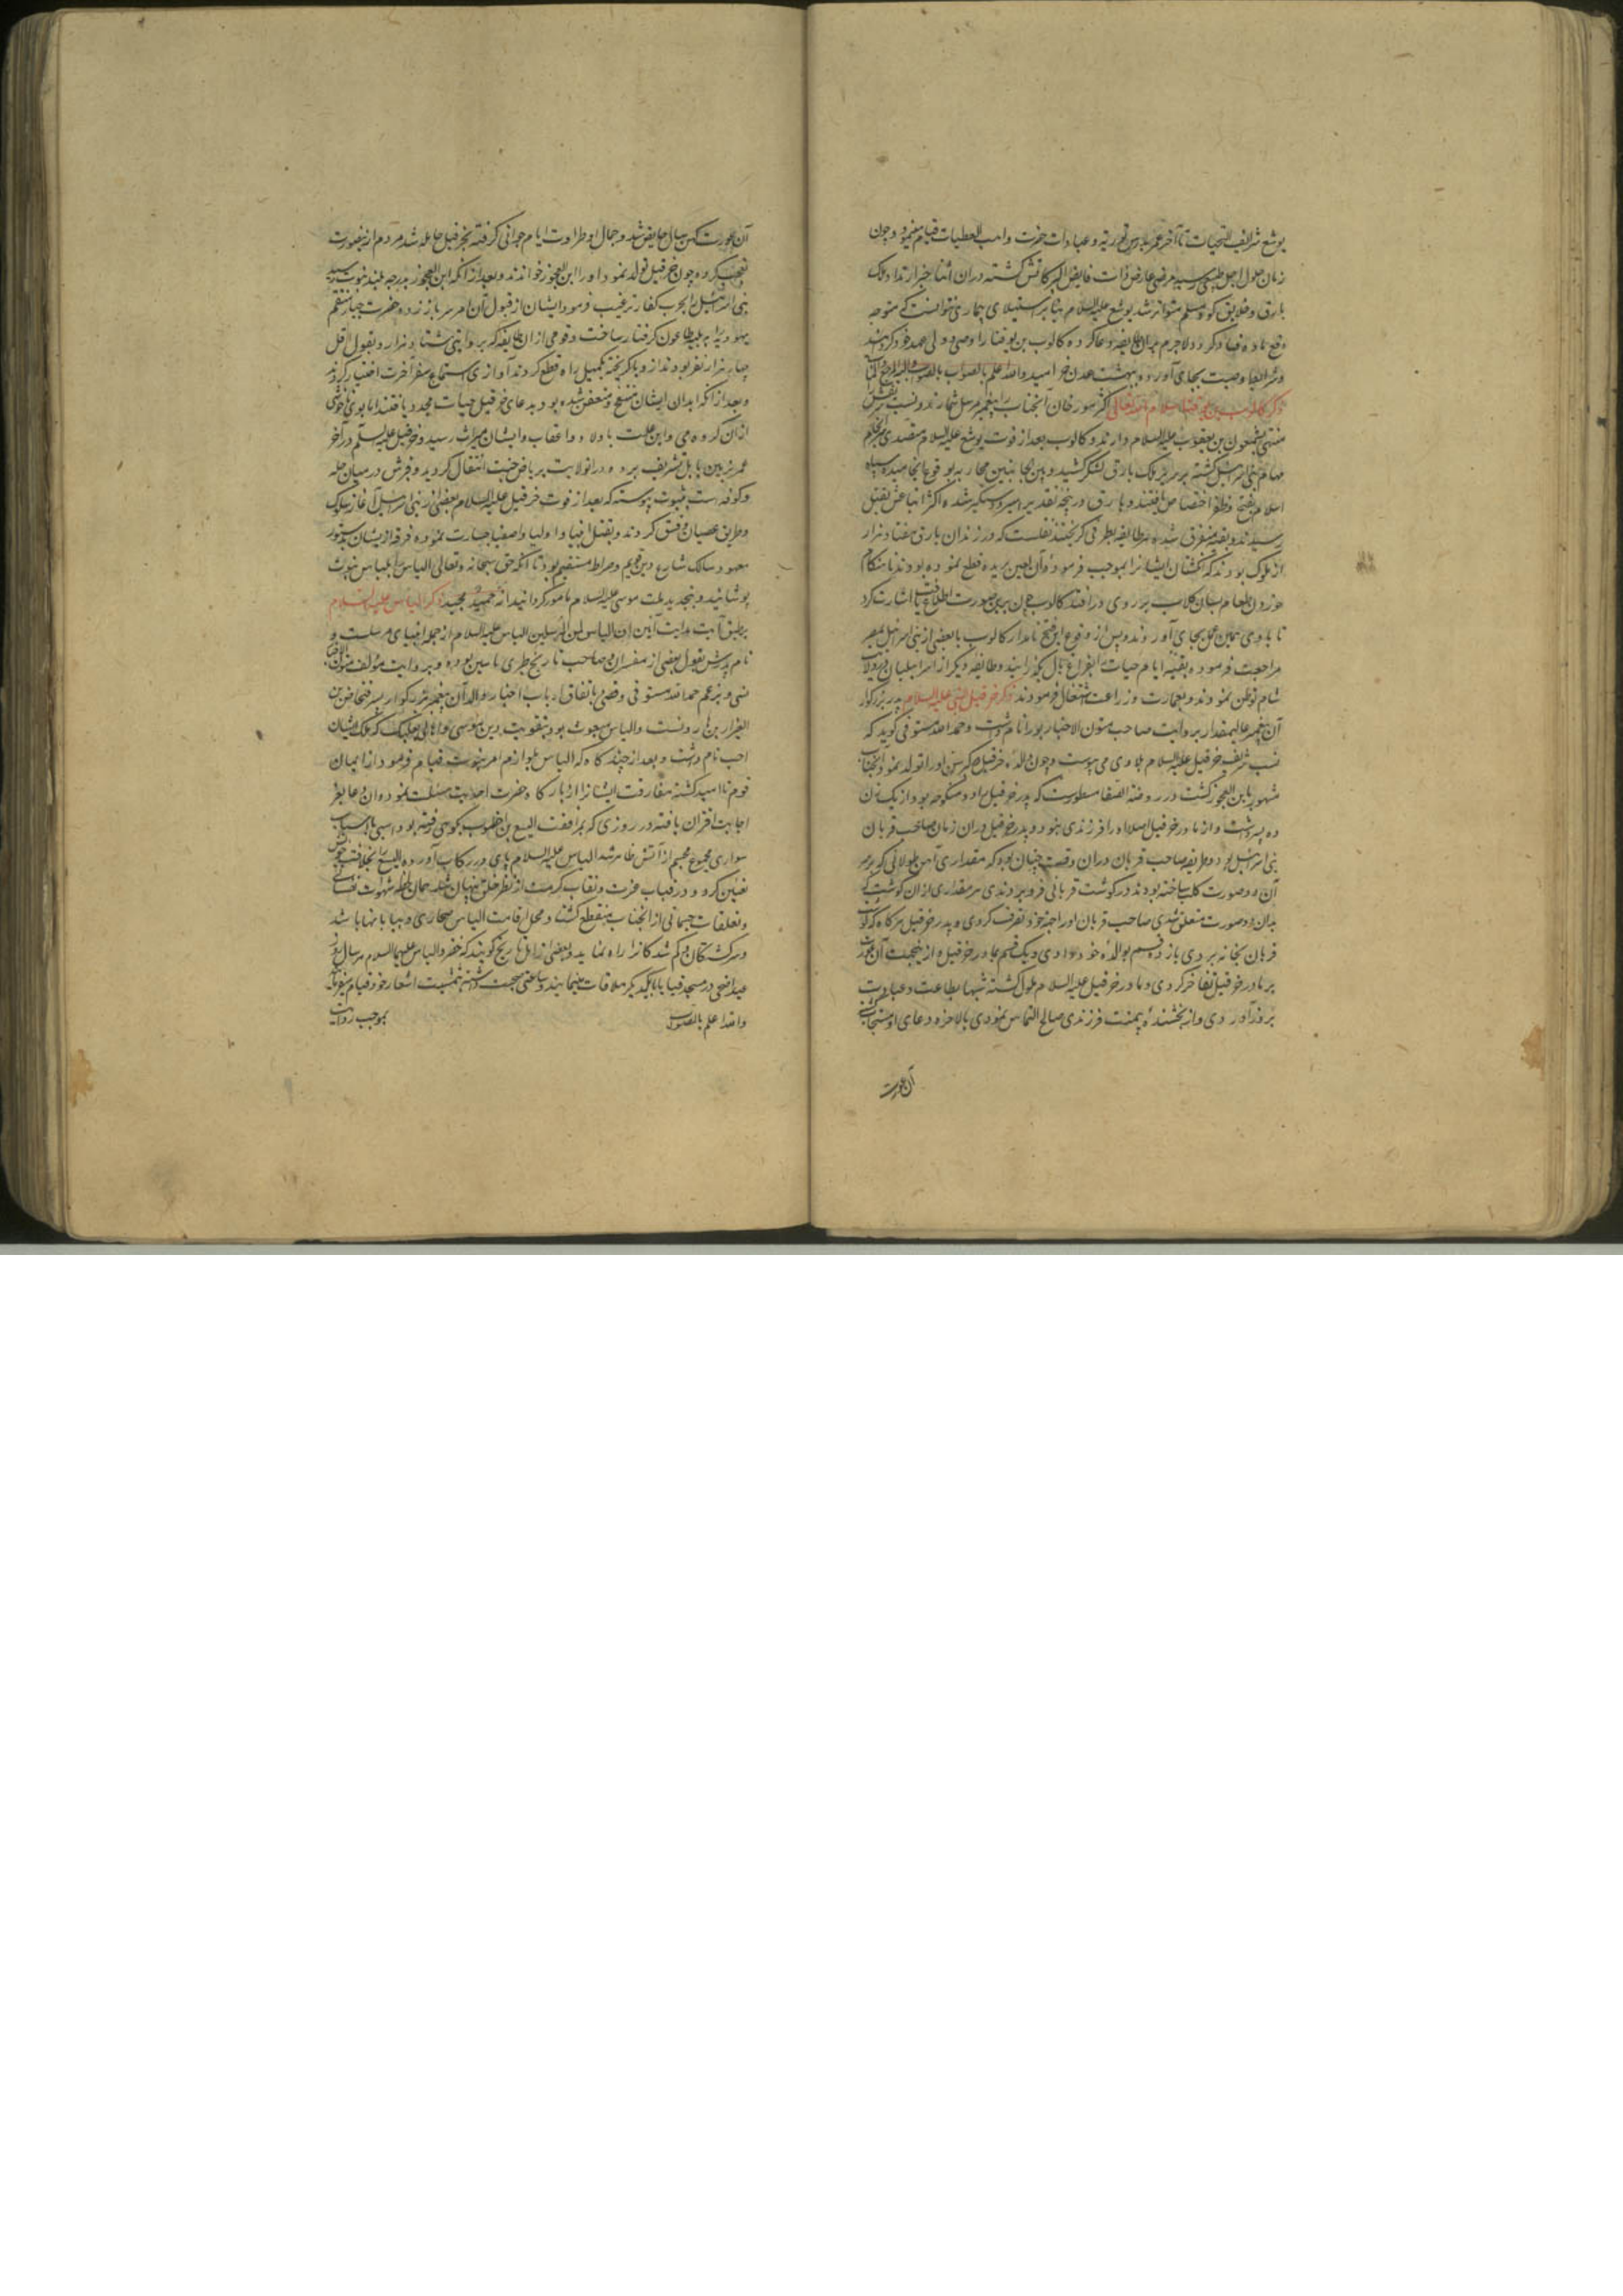 یوشع شرایف التحیات تا آخر عمر بدرس توریة و عبادات حضرت واهب العطیات قیام مینمود و چون
زمان حلول اجل طبیعی رسید مرضی عارض ذات فایض البرکاتش گشته دران اثنا خبر ارتداد ملک
بارق و خلایق کوه سلم متواتر شد یوشع علیه السلام بنا بر استیلای بیماری نتوانست که متوجه
دفع ماده فساد گردد لاجرم بران طایفه دعا کرده کالوب بن یوفنا را وصی و ولی عهد خود گردانید
و شرایط وصیت بجای آورده ببهشت عدن خرامید والله اعلم بالصواب
ذکر کالوب بن یوفنا سلام الله تعالی اکثر مورخان آنجناب را پیغمبر مرسل شمارند و نسب شریفش
منتهی بشمعون بن یعقوب علیه السلام دارند و کالوب بعد از فوت یوشع علیه السلام متصدی سرانجام
مهام بنی اسرائیل گشته بر سر ملک بارق لشکر کشید و بین الجانبین محاربه بوقوع انجامیده سپاه
اسلام بفتح و ظفر اختصاص یافتند و بارق در پنجه تقدیر اسیر و دستگیر شده اکثر اتباعش بقتل
رسیدند و بقیه متفرق شده هر طایفه بطرفی گریختند نقلست که در زندان بارق هفتاد هزار
از ملوک بودند که انگشتان ایشانرا بموجب فرموده آن لعین بریده قطع نموده بودند تا هنگام
خوردن طعام بسان کلاب بر روی درافتند کالوب چون برین صورت اطلاع یافت اشارت کرد
تا با وی همین عمل بجای آوردند و پس از وقوع این فتح نامدار کالوب با بعضی از بنی اسرائیل بمصر
مراجعت فرموده بقیه ایام حیات بفراغ بال بگذرانید و طایفه دیگر از اسرائیلیان در ولایت
شام توطن نمودند و بعمارت و زراعت اشتغال فرمودند ذکر خرقیل النبی علیه السلام پدر بزرگوار
آن پیغمبر عالیمقدار بروایت صاحب متون الاخبار بورا نام داشت و حمد الله مستوفی گوید که
نسب شریف خرقیل علیه السلام بلاوی می پیوست و چون والده خرقیل در کبر سن او را تولد نمود آنجناب
مشهور بابن العجوز گشت در روضة الصفا مسطورست که پدر خرقیل را دو منکوحه بود از یک زن
ده پسر داشت و از مادر خرقیل اصلا او را فرزندی نبود و پدر خرقیل دران زمان صاحب قربان
بنی اسرائیل بود و وظیفه صاحب قربان دران وقت چنان بود که مقداری آهن طولانی که بر سر
آن دو صورت کلب ساخته بودند در گوشت قربانی فرو بردندی هر مقداری ازان گوشت که
بدان دو صورت متعلق شدی صاحب قربان آنرا جهة خود تصرف کردی و پدر خرقیل هرگاه گوشت
قربان بخانه بردی یازده قسم بوالده خود دادی و یک قسم بمادر خرقیل و ازین جهت آن عورت
بر مادر خرقیل تفاخر کردی و مادر خرقیل علیه السلام ملول گشته شبها بطاعت و عبادت
بروز آوردی و از بخشنده بیمنت فرزندی صالح التماس نمودی بالاخره دعای او مستجاب گشت
آن عورت
آن عورت کهن سال حایض شد و جمال او طراوت ایام جوانی گرفته بخرقیل حامله شد مردم از ینصورت
تعجب کرده چون خرقیل تولد نمود او را ابن العجوز خواندند و بعد از آنکه ابن العجوز بدرجه بلند نبوت رسید
بنی اسرائیل را بحرب کفار ترغیب فرمود ایشان از قبول آن امر سر باز زده حضرت جبار منتقم
یهود را ببلیه طاعون گرفتار ساخت و قومی از ان طایفه که بروایتی هشتاد هزار و بقول اقل
چهار هزار نفر بودند از وبا گریخته یکمیل راه قطع کردند آوازی استماع نموده سفر آخرت اختیار کردند
و بعد از آنکه ابدان ایشان منتفخ و متعفن شده بود بدعای خرقیل حیات مجدد یافتند اما بوی ناخوش
ازان گروه می‌آمد و این علت باولاد و اعقاب ایشان میراث رسید و خرقیل علیه السلم در آخر
عمر بزمین بابل تشریف برد و در انولایت بریاض جنت انتقال گردید و قبرش در میان حله
و کوفه است بثبوت پیوسته که بعد از فوت خرقیل علیه السلام بعضی از بنی اسرائیل آغاز سلوک
طریق عصیان و فسق کردند و بقتل انبیا و اولیا و اصفیا جسارت نموده فرقه ازیشان بدستور
معهود سالک شارع دین قویم و صراط مستقیم بود تا آنکه حق سبحانه و تعالی الیاس را بلباس نبوت
پوشانید و بتجدید ملت موسی علیه السلام مامور گردانید انه حمید مجید ذکر الیاس علیه السلام
بر طبق آیت هدایت آیین ان الیاس لمن المرسلین الیاس علیه السلام از جمله انبیای مرسلست و
نام پدرش بقول بعضی از مفسران و صاحب تاریخ طبری یاسین بوده و بروایت مؤلف متون الاخبار
نسی و بزعم حمد الله مستوفی و قضی باتفاق ارباب اخبار والد آن پیغمبر بزرگوار پسر فنحاص بن
العیزار بن هارونست و الیاس مبعوث بود بتقویت دین موسی و اهالی بعلبک که ملک ایشان
احب نام داشت و بعد از چند گاه که الیاس بلوازم امر نبوت قیام فرمود از ایمان
قوم نا امید گشته مفارقت ایشانرا از بارگاه حضرت احدیت مسئلت نموده و آن دعا بعز
اجابت اقتران یافته در روزی که بمرافقت الیسع بن اخطوب بکوهی رفته بود اسپی با اسباب
سواری مجموع مجسم از آتش ظاهر شد الیاس علیه السلام پای در رکاب آورده الیسع را بخلافت خویش
تعیین کرد و در قباب عزت و نقاب کرمت از نظر خلق پنهان شد همان لحظه شهوات نفسانی
و تعلقات جسمانی از آنجناب منقطع گشت و محل اقامت الیاس صحاری و بیابانها باشد
و سرگشتگان و گم شدگانرا راه نماید و بعضی از اهل تاریخ گویند که خضر و الیاس علیهما السلام هر سال روز
عید اضحی در مسجد قبا با یکدیگر ملاقات مینمایند و ساعتی صحبت داشته بتمشیت اشغال خود قیام میفرمایند
والله اعلم بالصواب بموجب روایت